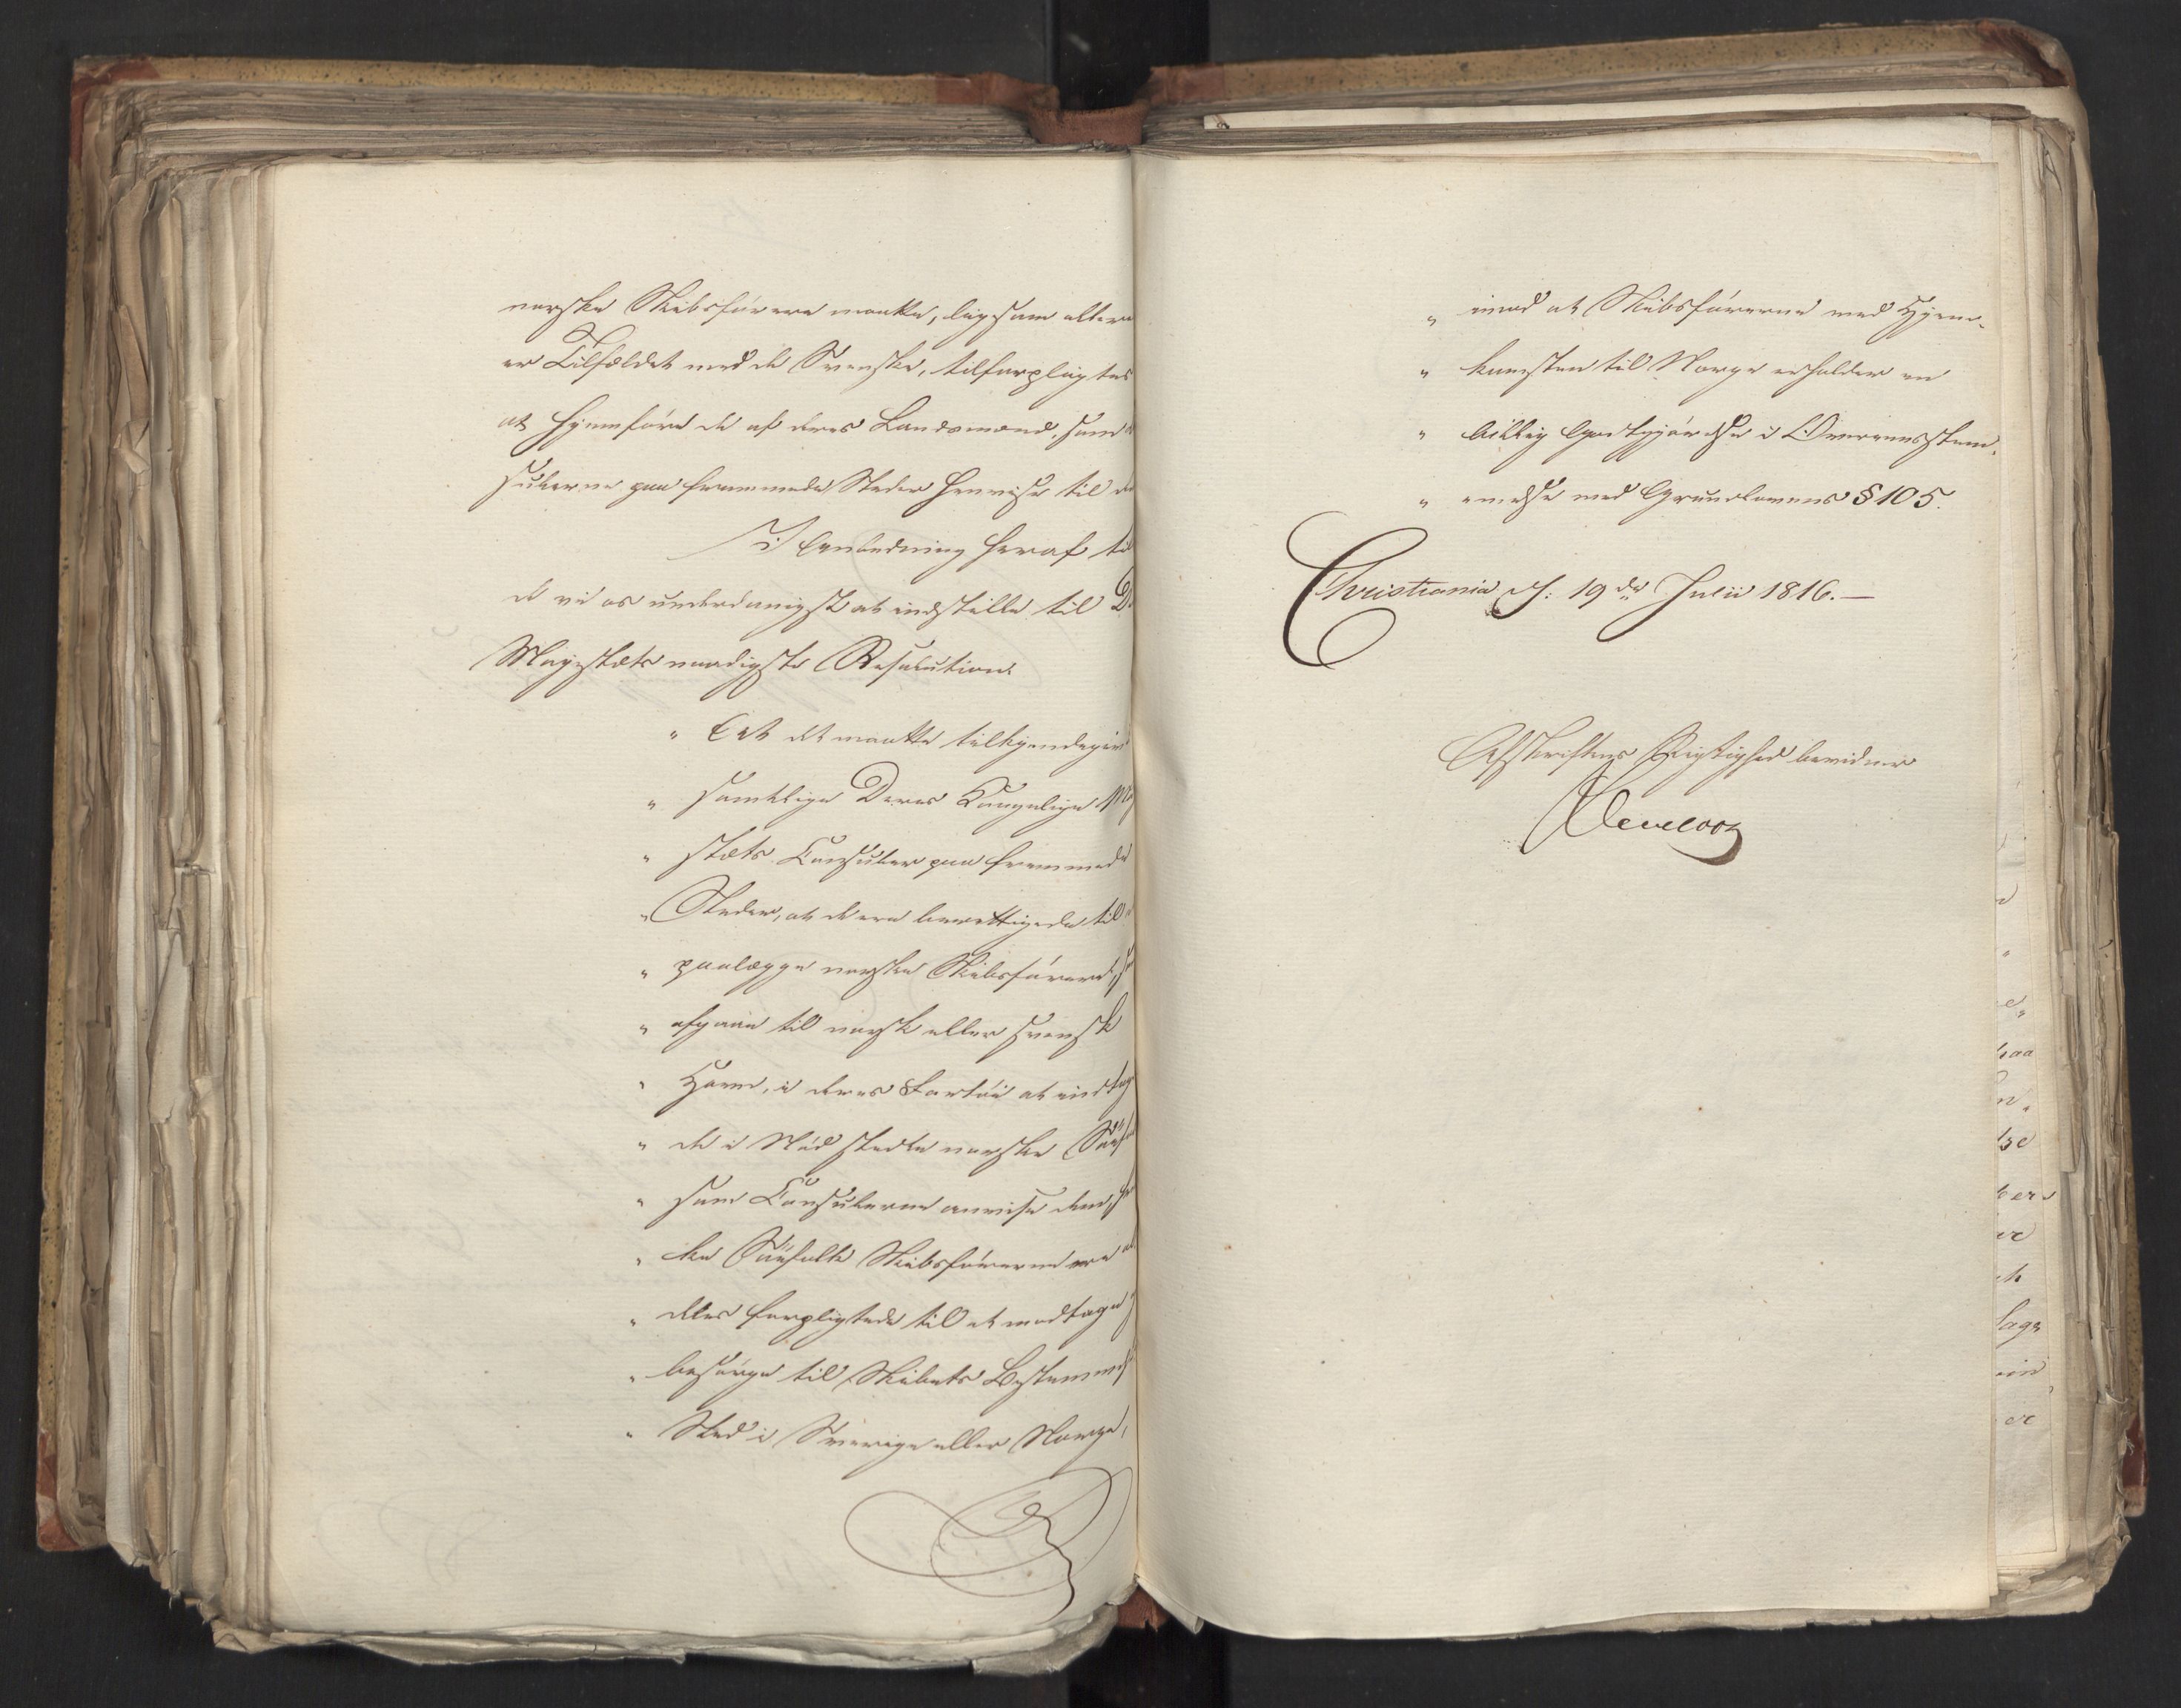 norske Skibsførere maatte, ligesom allere
er Tilfældet med de Svenske, tilforpligtes
at hjemføre de af deres Landsmænd, som
sulerne paa fremmede Steder henvise til de
I Anledning heraf til
de vi os underdanigst at indstille til D.
Majestæts naadigste Resolution:
" At det maatte tilkjendegiv
" samtlige Deres Kongelige Maj
" stæts Consuler paa fremmede
" Steder, at de ere berettigede til
" paalægge norske Skibsførere,
" afgaae til norsk eller svensk
" Havn, i deres Fartøi at indtag
" de i Nød stedte norske Søef
" som Consulerne anvise dem,
" ke Søefolk Skibsførerne ere
" deles forpligtede til at modtage
" besørge til Skibets Bestemmels
" Sted i Sverige eller Norge,
" imod at Skibsførerne ved Hjem-
" komsten til Norge erholder en
" billig Godtgjørelse i Overeensstem-
" melse med Grundlovens § 105.
Christiania d: 19de Julii 1816.—
Afskriftens Rigtighed bevidner